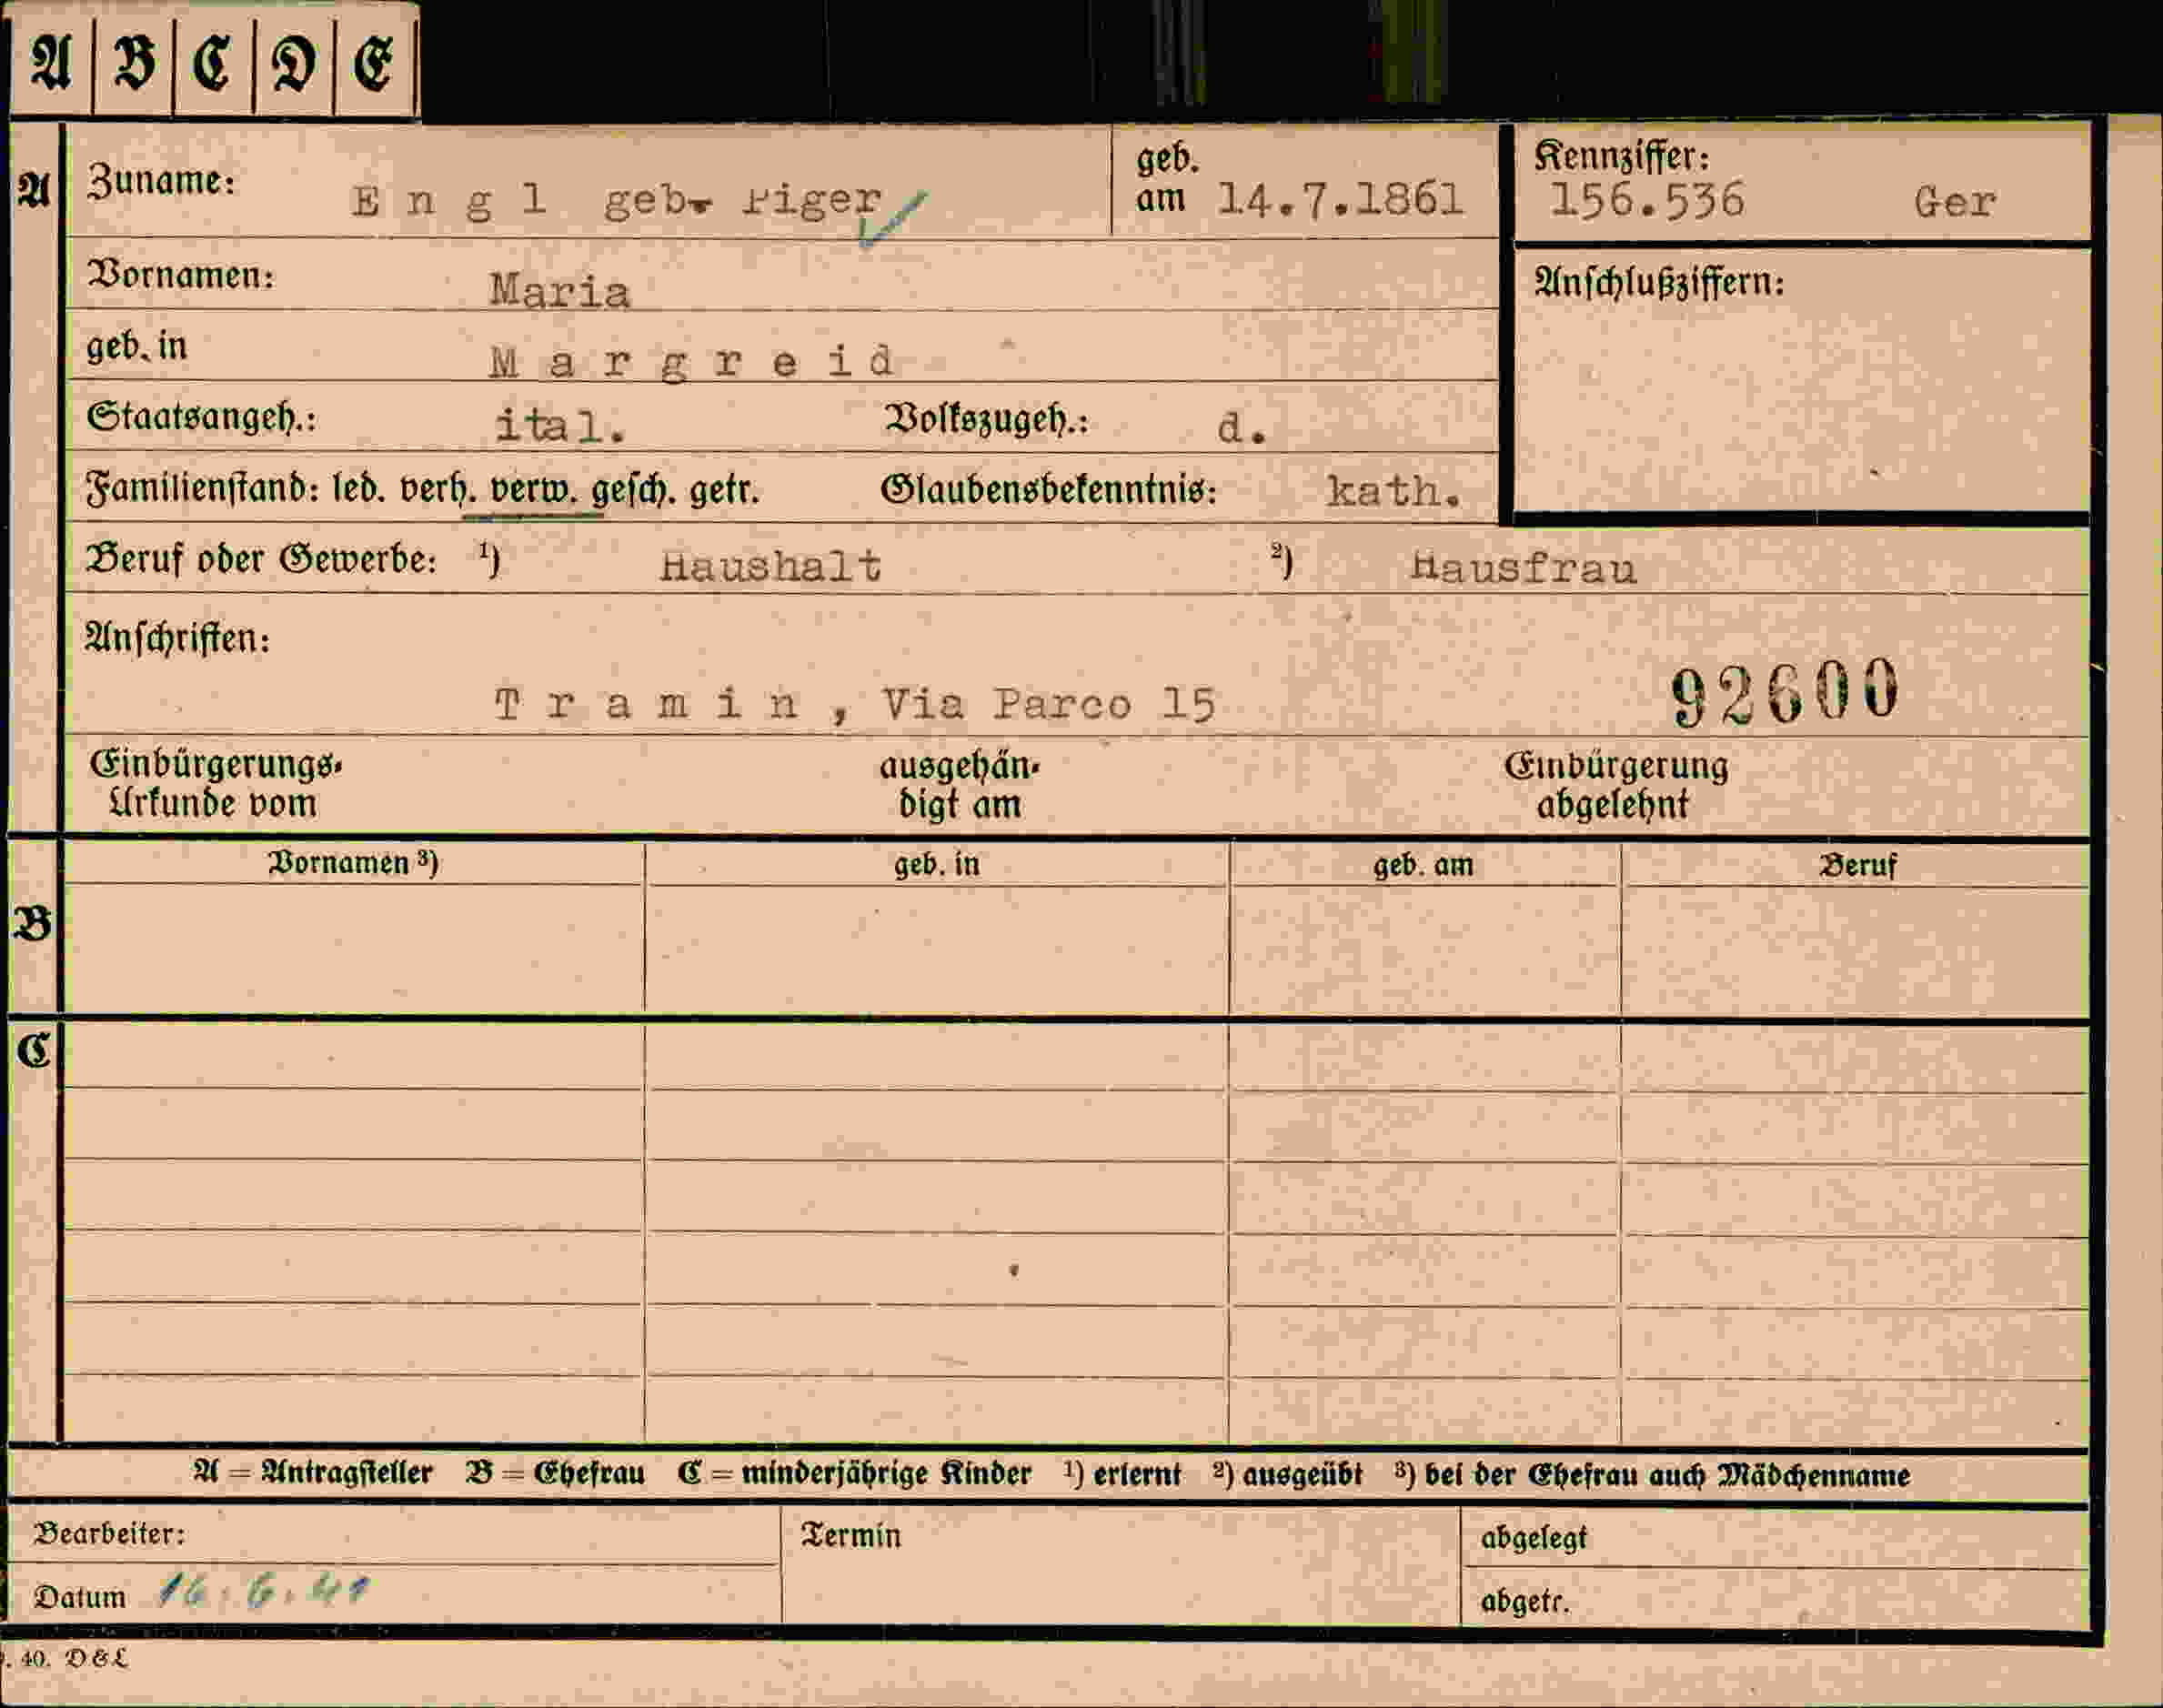 A B C D E
A Zuname: E n g l geb. geb. am 14.7.1861 Kennziffer: 156.536 Ger
Vornamen: Maria Anschlußziffern:
geb. in M a r g r e i d
Staatsangeh.: ital. Volkszugeh.: d.
Familienstand: led. verh. verw. gesch. getr. Glaubensbekenntnis: kath.
Beruf oder Gewerbe: ¹) Haushalt ²) Hausfrau
Anschriften:
T r a m i n , Via Parco 15 92600
Einbürgerungs- ausgehän- Einbürgerung
Urkunde vom digt am abgelehnt
Vornamen ³) geb. in geb. am Beruf
B
C
A = Antragsteller B = Ehefrau C = minderjährige Kinder ¹) erlernt ²) ausgeübt ³) bei der Ehefrau auch Mädchenname
Bearbeiter: Termin abgelegt
Datum 16.6.41 abgetr.
. 40. D & L